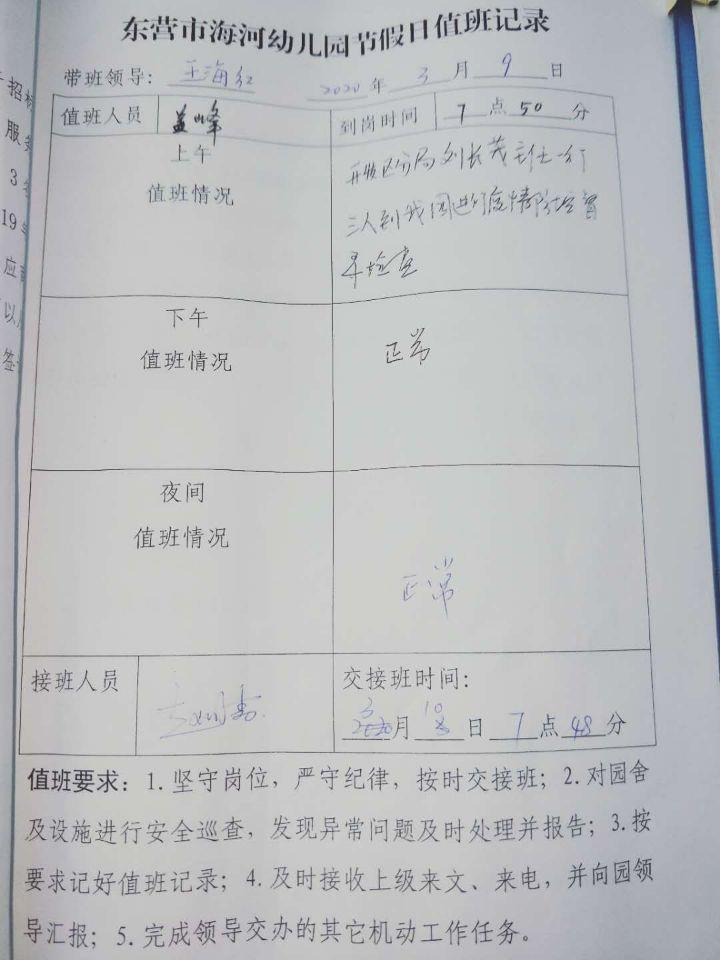 东营市海河幼儿园节假日值班记录
带班领导：王海红 2020年3月9日
值班人员 益峰 到岗时间 7点50分
上午
值班情况
开发区分局刘长茂主任一行
三人到我园进行疫情防控督
导检查
下午
值班情况
正常
夜间
值班情况
正常
接班人员
交接班时间：
3月10日7点48分
值班要求：1.坚守岗位，严守纪律，按时交接班；2.对园舍
及设施进行安全巡查，发现异常问题及时处理并报告；3.按
要求记好值班记录；4.及时接收上级来文、来电，并向园领
导汇报；5.完成领导交办的其它机动工作任务。
招标
服务
3
19
应
以
签